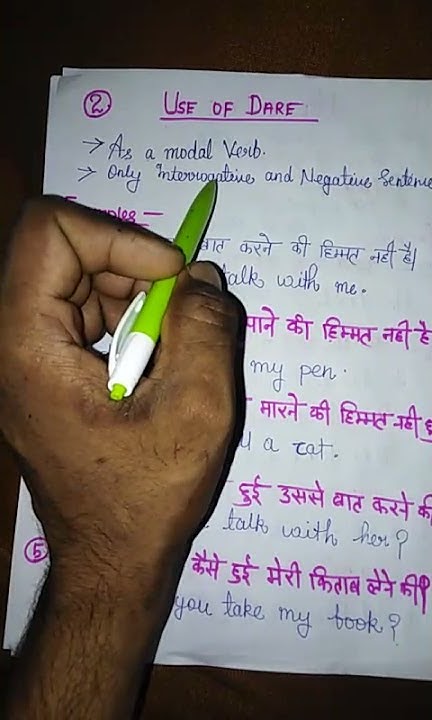 ② USE OF DARE
→ As a modal Verb.
→ Only Interrogative and Negative Sentence
Examples —
बात करने की हिम्मत नही है।
talk with me.
की हिम्मत नही है
my pen.
मारने की हिम्मत नही
a cat.
हुई उससे बात करने की
talk with her?
⑤ कैसे हुई मेरी किताब लेने की?
you take my book?